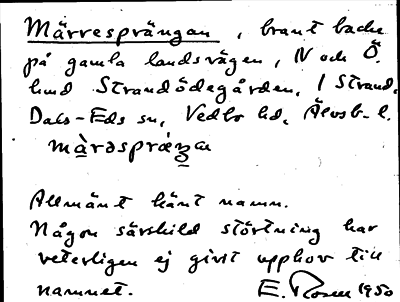 Märresprängan, brant backe
på gamla landsvägen, N och Ö.
hmd Strandödegården, 1 Strand,
Dals-Eds sn, Vedbo hd, Älvsb. l.
màrəspräŋa
Allmänt känt namn.
Någon särskild störtning har
veterligen ej givit upphov till
namnet. E. Rosen 1950